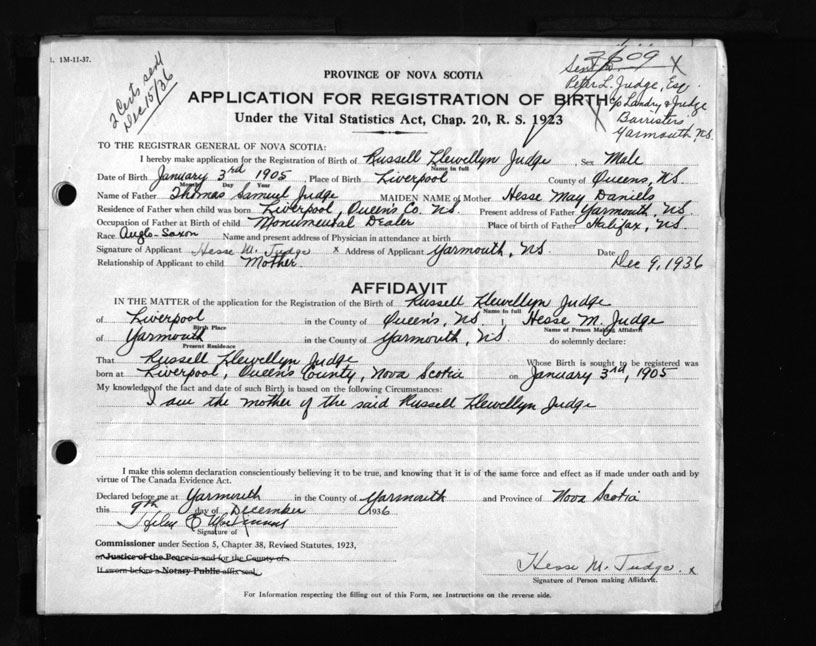 1M-11-37.
2 Certs sent
Dec 15/36
3609 X
Sent to
Peter L. Judge, Esq
c/o Landry & Judge
Barristers
Yarmouth, N.S.
PROVINCE OF NOVA SCOTIA
APPLICATION FOR REGISTRATION OF BIRTH
Under the Vital Statistics Act, Chap. 20, R. S. 1923
TO THE REGISTRAR GENERAL OF NOVA SCOTIA:
I hereby make application for the Registration of Birth of Russell Llewellyn Judge, Sex Male
Name in full
Date of Birth January 3rd 1905, Place of Birth Liverpool County of Queens, N.S.
Month Day Year
Name of Father Thomas Samuel Judge MAIDEN NAME of Mother Hesse May Daniels
Residence of Father when child was born Liverpool, Queens Co. N.S. Present address of Father Yarmouth, N.S.
Occupation of Father at Birth of child Monumental Dealer Place of birth of Father Halifax, N.S.
Race Anglo-Saxon Name and present address of Physician in attendance at birth
Signature of Applicant Hesse M. Judge x Address of Applicant Yarmouth, N.S. Date Dec 9, 1936
Relationship of Applicant to child Mother.
AFFIDAVIT
IN THE MATTER of the application for the Registration of the Birth of Russell Llewellyn Judge
Name in full
of Liverpool in the County of Queen's, N.S. I Hesse M. Judge
Birth Place Name of Person Making Affidavit
of Yarmouth in the County of Yarmouth, N.S. do solemnly declare:
Present Residence
That Russell Llewellyn Judge Whose Birth is sought to be registered was
born at Liverpool, Queen's County, Nova Scotia on January 3rd, 1905
My knowledge of the fact and date of such Birth is based on the following Circumstances:
I am the mother of the said Russell Llewellyn Judge
I make this solemn declaration conscientiously believing it to be true, and knowing that it is of the same force and effect as if made under oath and by
virtue of The Canada Evidence Act.
Declared before me at Yarmouth in the County of Yarmouth and Province of Nova Scotia
this 9th day of December 1936
Signature of
Commissioner under Section 5, Chapter 38, Revised Statutes, 1923,
or Justice of the Peace in and for the County of
If sworn before a Notary Public affix seal.
Hesse M. Judge x
Signature of Person making Affidavit.
For Information respecting the filling out of this Form, see Instructions on the reverse side.